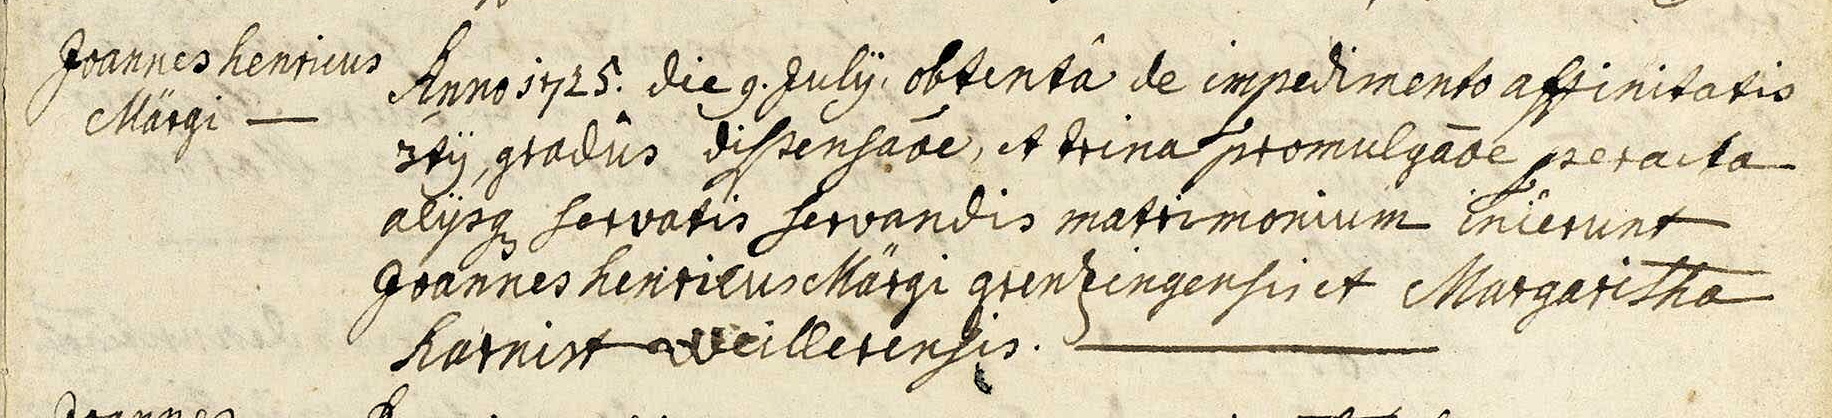 Joannes henricus
Märgi —
Anno 1725. die 9. Julÿ. obtentâ de impedimento affinitatis
3tÿ, gradûs dispensāoe, et trina promulgāoe peracta
alÿsq servatis servandis matrimonium inierunt
Joannes henricus Märgi grentzingensis et Margaritha
harnist Weillerensis. —
Joannes